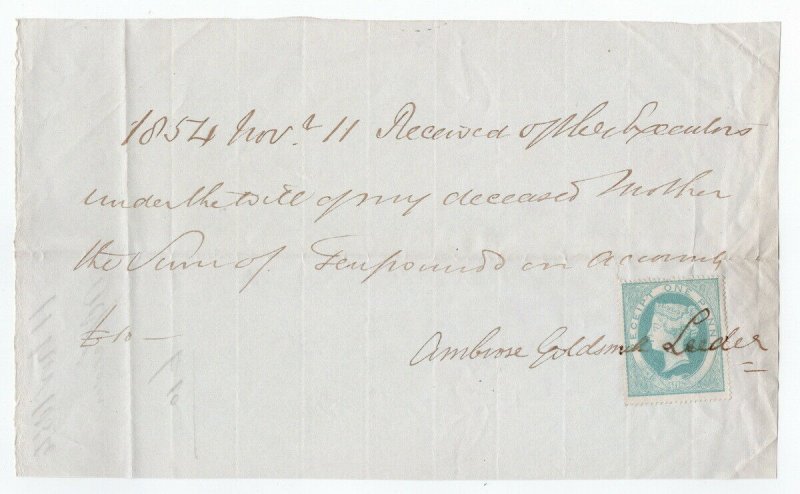 1854 Novr 11 Received of the Executors
under the will of my deceased Mother
the Sum of Ten pounds on account
£10 —
Ambrose Goldsmith Leeder
RECEIPT ONE PENNY